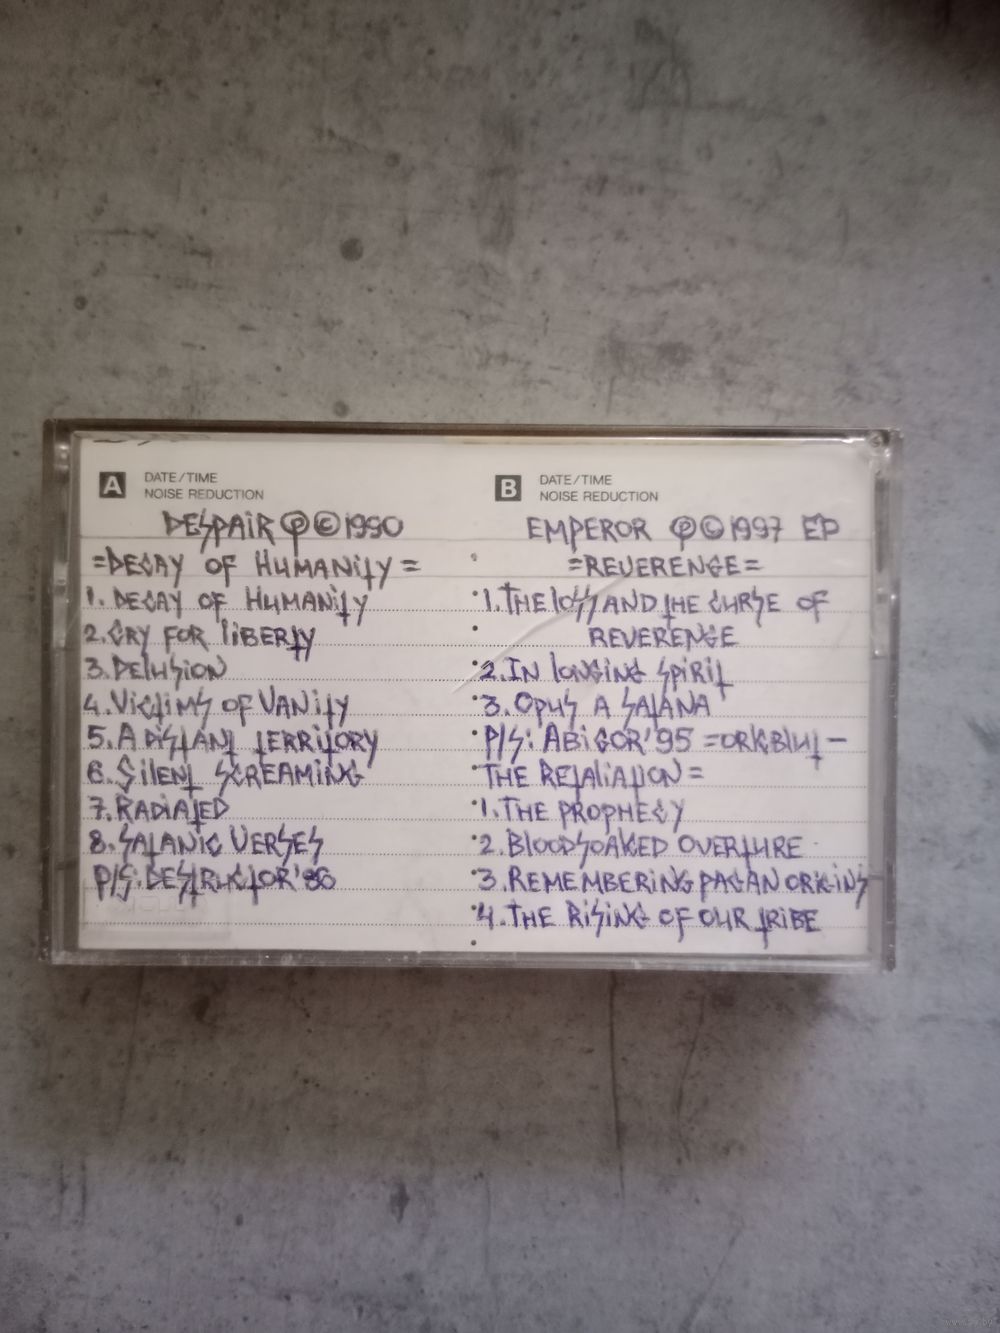 A DATE/TIME
NOISE REDUCTION
DESPAIR ℗ © 1990
=DECAY OF HUMANITY=
1. DECAY OF HUMANITY
2. CRY FOR LIBERTY
3. DELUSION
4. VICTIMS OF VANITY
5. A DISTANT TERRITORY
6. SILENT SCREAMING
7. RADIATED
8. SATANIC VERSES
P/S: DESTRUCTOR'86
B DATE/TIME
NOISE REDUCTION
EMPEROR ℗ © 1997 EP
=REVERENGE=
1. THE LOSS AND THE CURSE OF
REVERENGE
2. IN LONGING SPIRIT
3. OPUS A SATANA
P/S: ABIGOR'95 =ORKBLUT-
THE RETALIATION=
1. THE PROPHECY
2. BLOODSOAKED OVERTURE
3. REMEMBERING PAGAN ORIGINS
4. THE RISING OF OUR TRIBE